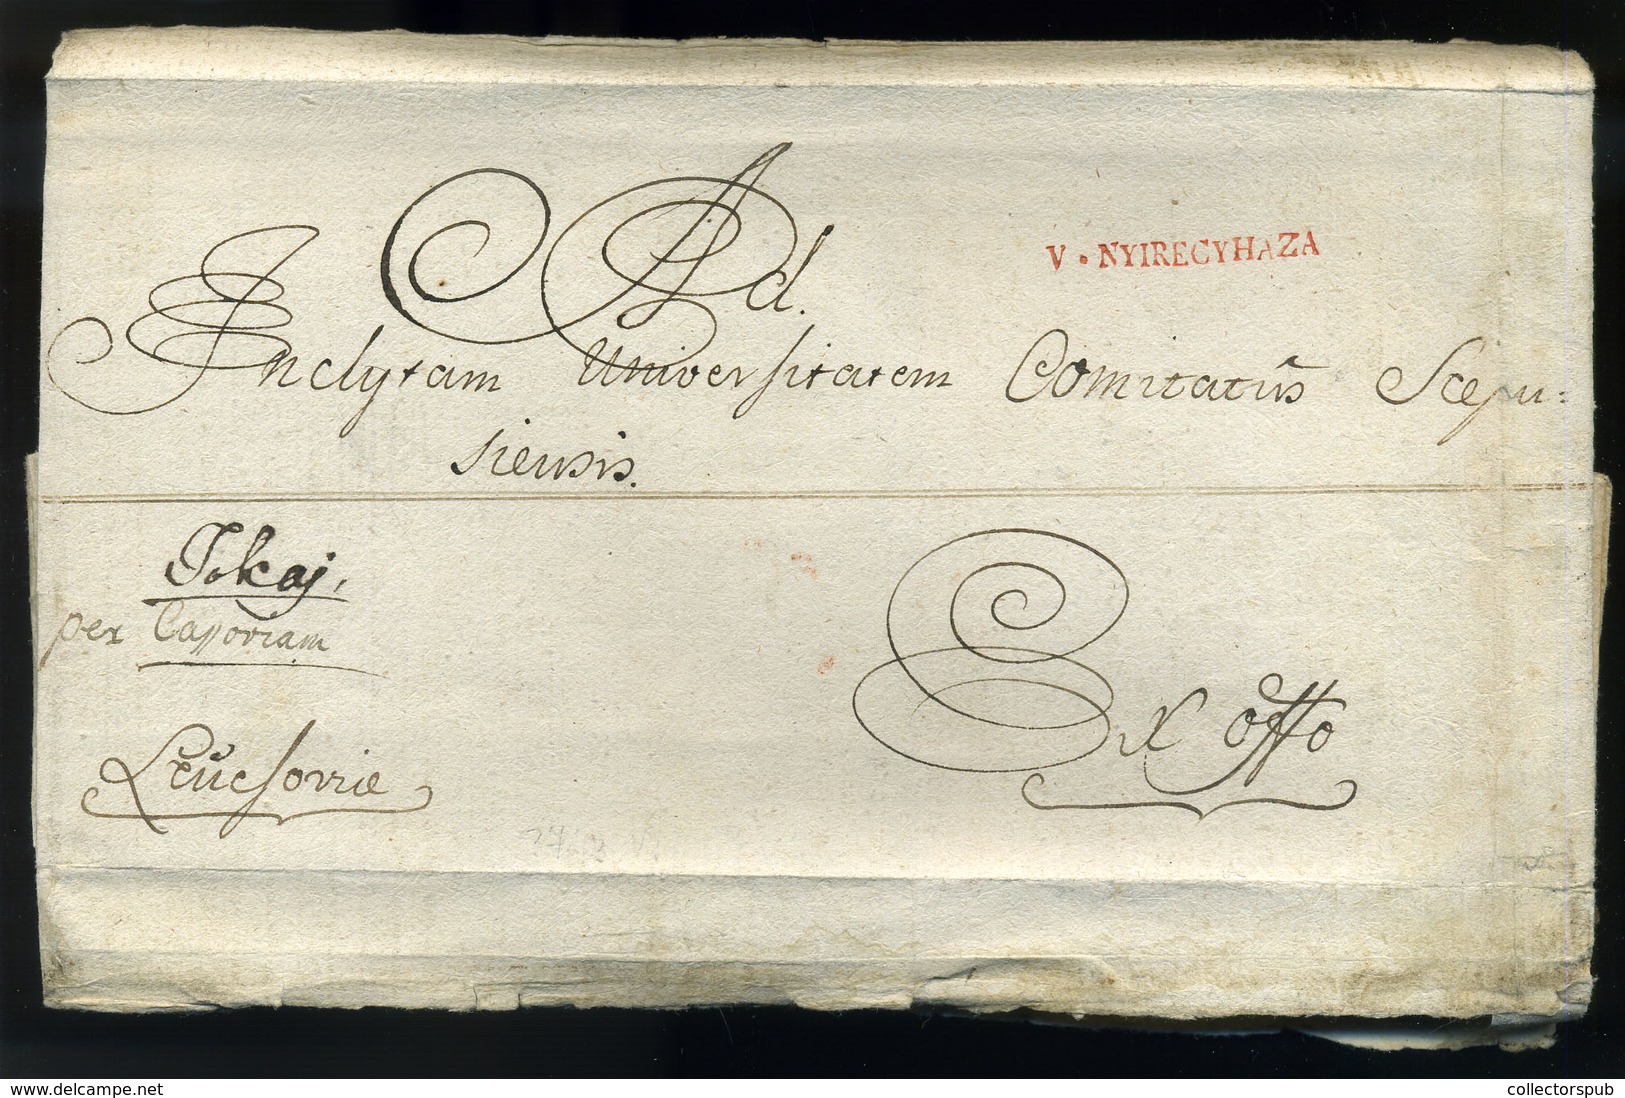 V. NYIREGYHAZA
Ad.
Inclytam Universitatem Comitatûs Scepu-
siensis.
Tokaj,
per Cassoviam
Leuchovie
Ex offo
www.delcampe.net
collectorspub